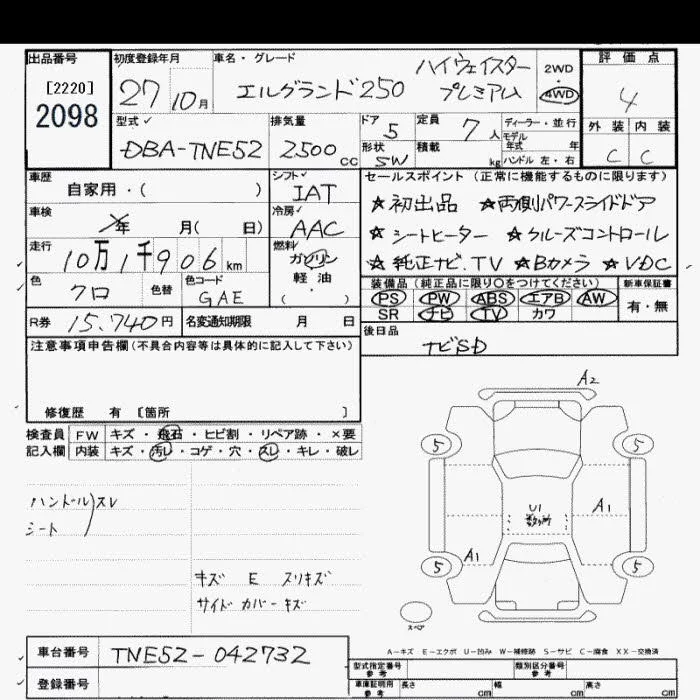 出品番号
[2220]
2098
初度登録年月
27 10月
車名・グレード
エルグランド250
ハイウェイスター
プレミアム
2WD
・
4WD
評価点
4
外装 内装
C C
型式
DBA-TNE52
排気量
2500cc
ドア
5
形状
SW
定員
7人
積載
kg
ディーラー・並行
モデル
年式 年
ハンドル 左・右
車歴
自家用・( )
シフト
IAT
車検
年 月( 日)
冷房
AAC
走行
10万1千906km
燃料
ガソリン
・
軽油
( )
色
クロ
色替
色コード
GAE
R券 15,740円
名変通知期限 月 日
セールスポイント(正常に機能するものに限ります)
★初出品 ★両側パワースライドドア
★シートヒーター ★クルーズコントロール
★純正ナビ.TV ★Bカメラ ★VDC
装備品(純正品に限り○をつけてください)
PS PW ABS エアB AW
SR ナビ TV カワ
新車保証書
有・無
後日品
ナビSD
注意事項申告欄(不具合内容等は具体的に記入して下さい)
修復歴 有 [箇所 ]
検査員
記入欄
FW キズ・飛石・ヒビ割・リペア跡・×要
内装 キズ・汚レ・コゲ・穴・スレ・キレ・破レ
ハンドル)スレ
シート
キズ E スリキズ
サイドカバーキズ
A2
5 5
U1
数ヶ所
A1
A1
5 5
スペア
A-キズ E-エクボ U-凹み W-補修跡 S-サビ C-腐食 XX-交換済
車台番号
TNE52-042732
登録番号
型式指定番号
参考
類別区分番号
参考
車庫証明用
参考
長さ cm 幅 cm 高さ cm